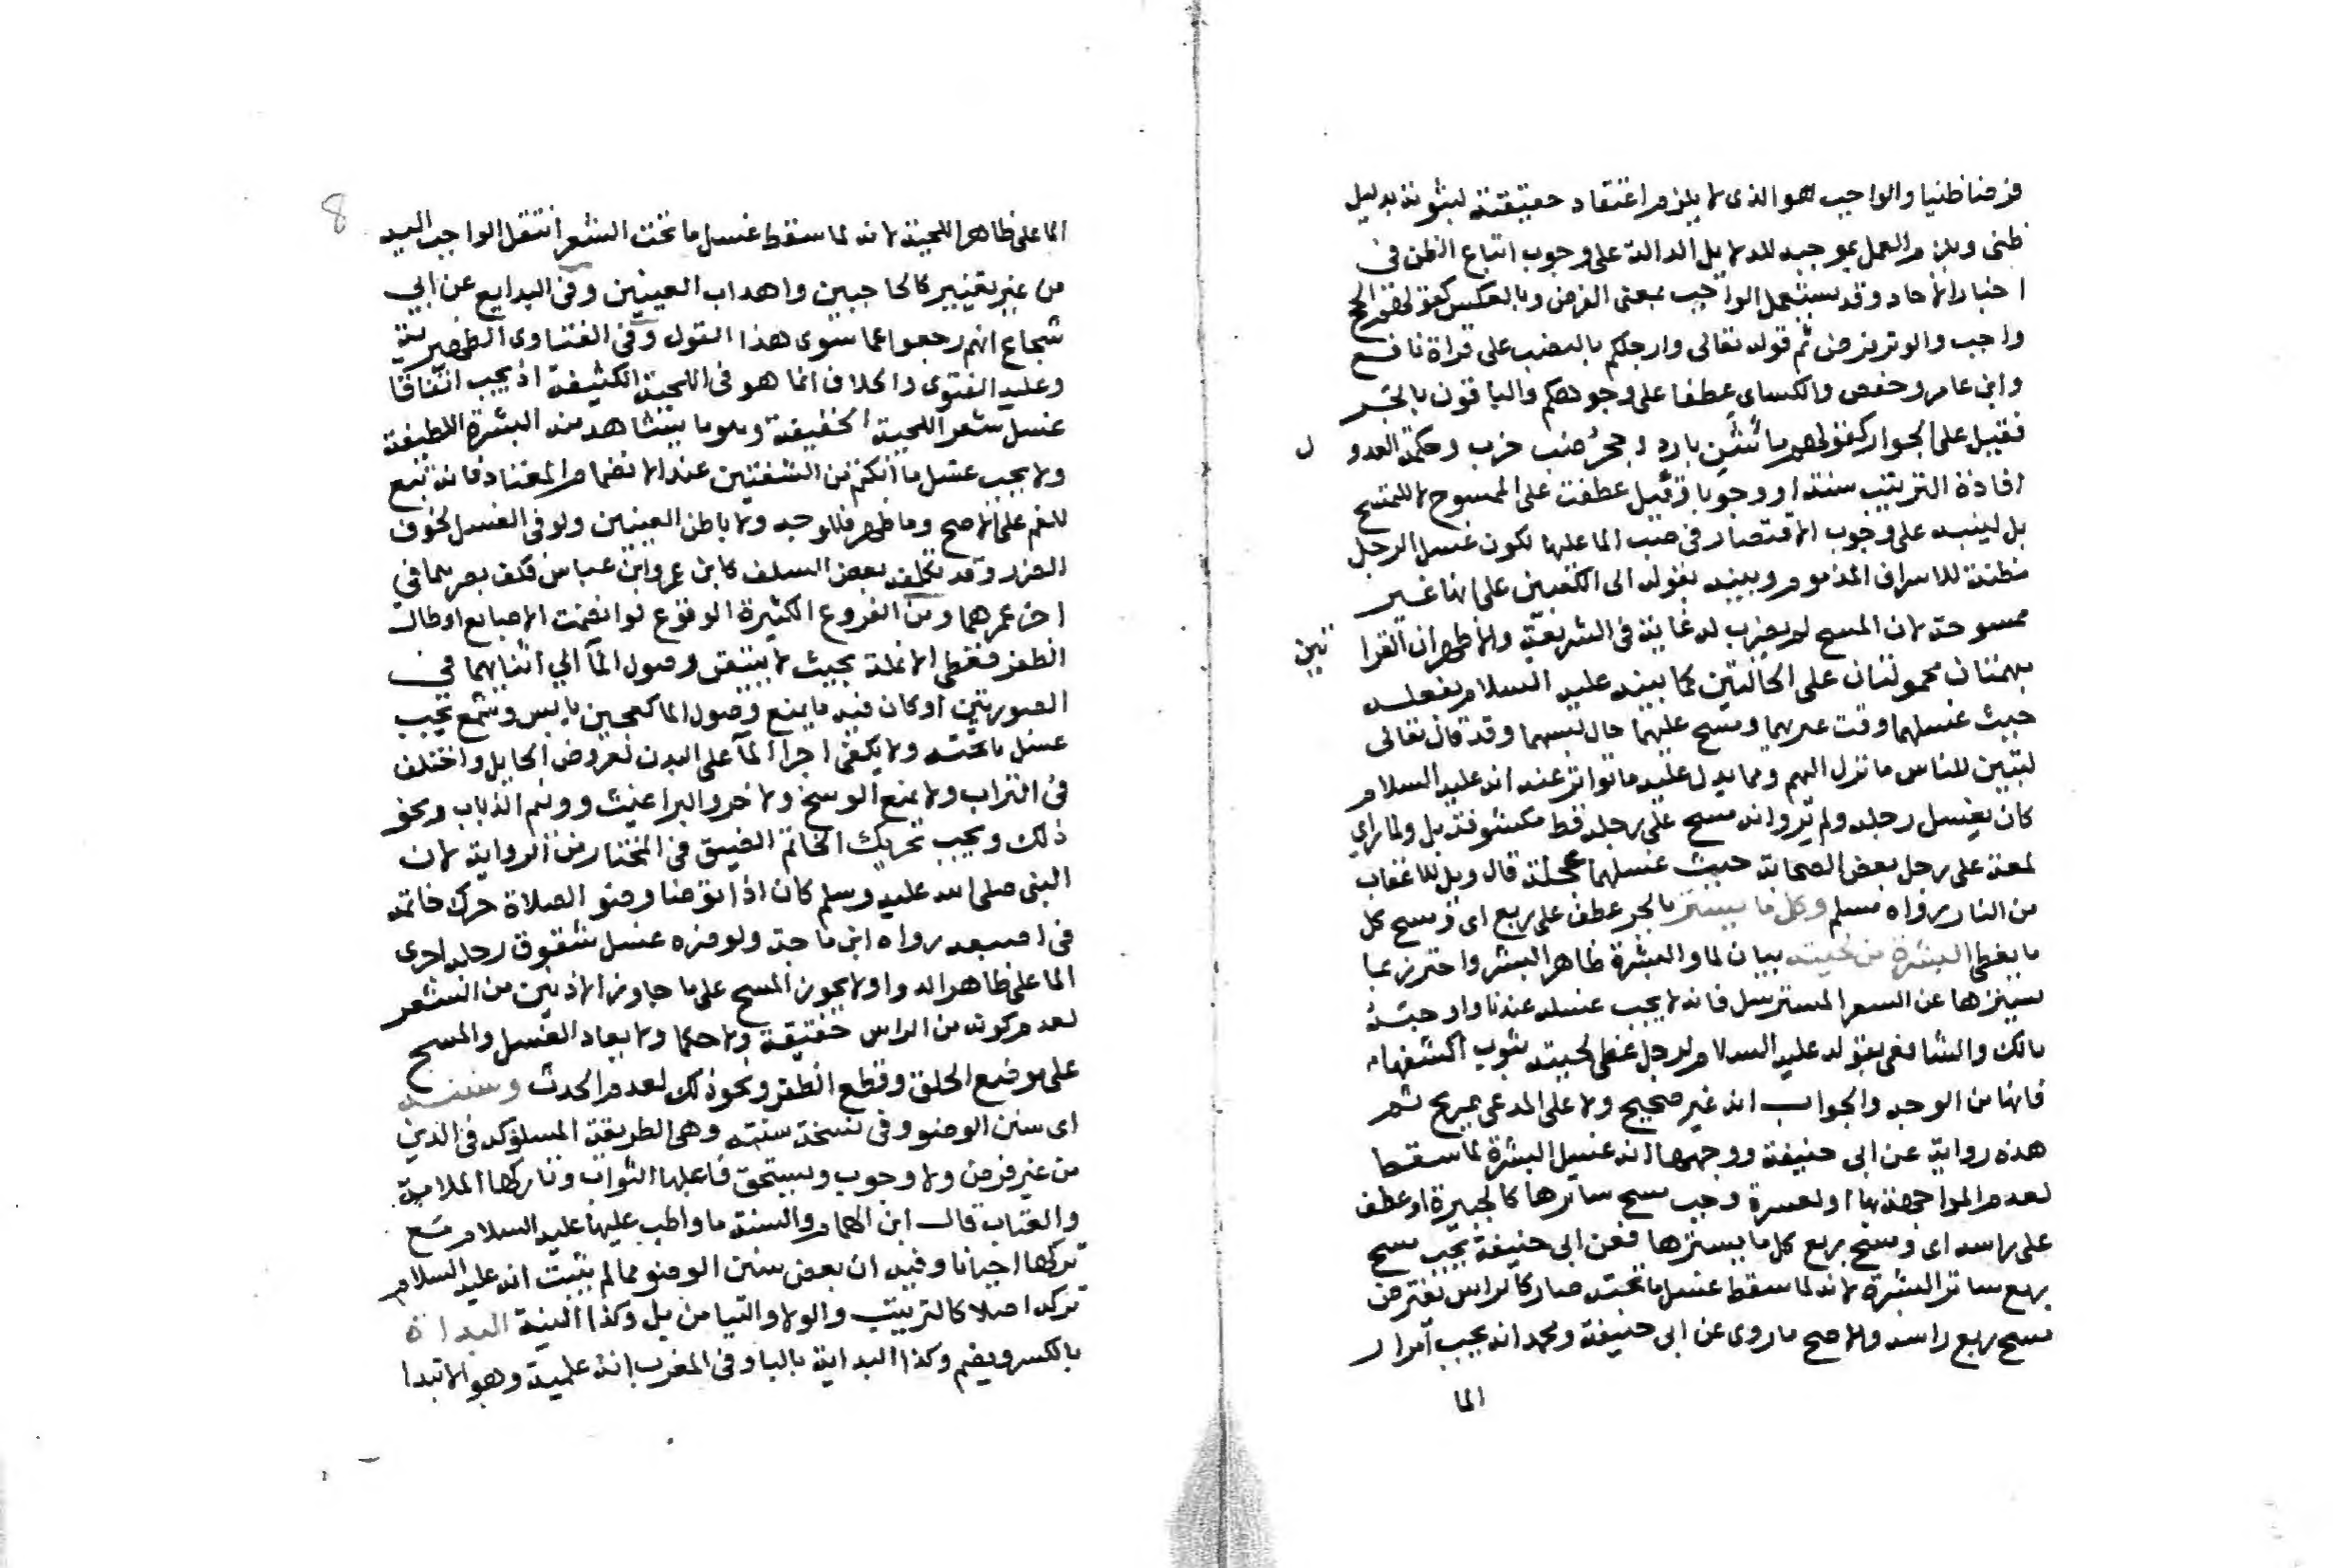 فرضا ظنيا والواجب هو الذي لا يلزم اعتقاد حقيقته لثبوته بدليل
ظني ويلزم العمل بموجبه للدلايل الدالة على وجوب اتباع الظن في
اخبار الاحاد وقد يستعمل الواجب بمعنى الفرض وبالعكس كقولهم الحج
واجب والوتر فرض ثم قوله تعالى وارجلكم بالنصب على قراة نافع
وابن عامر وحفص والكساي عطفا على وجوهكم والباقون بالجر
فقيل على الجوار كقولهم ماء شن بارد وجحر ضب خرب وحكمة العدو ل
افادة الترتيب سنة او وجوبا وقيل عطفت على الممسوح لا للتمسح
بل لينبه على وجوب الاقتصار في صب الما عليها لكون غسل الرجل
مظنة للاسراف المذموم وبينه بقوله الى الكعبين على انها غير
ممسوحة لان المسح لم يضرب له غاية في الشريعة والاظهر ان القرا تين
بهمتان محمولتان على الحالتين كما بينه عليه السلام بفعله
حيث غسلهما وقت عريهما ومسح عليهما حال لبسهما وقد قال تعالى
لتبين للناس ما نزل اليهم ومما يدل عليه ما تواتر عنه انه عليه السلام
كان يغسل رجله ولم يرو انه مسح على رجله قط مكشوفة بل ولما راي
لمعة على رجل بعض الصحابة حيث غسلهما عجلة قال ويل للاعقاب
من النار رواه مسلم وكل ما يستر بالجر عطف على ربع اي ومسح كل
ما يغطي البشرة من لحيته بيان لما والبشرة ظاهر البشر واحترز بما
يسترها عن الشعر المسترسل فانه لا يجب غسله عندنا واوجبه
مالك والشافعي بقوله عليه السلام لرجل غطى لحيته بثوب اكشفها
فانها من الوجه والجواب انه غير صحيح ولا على المدعى صريح ثم
هذه رواية عن ابي حنيفة ووجهها انه غسل البشرة لما سقط
لعدم المواجهة بها او لعسره وجب مسح ساترها كالجبيرة او عطف
على راسه اي ومسح ربع كل ما يسترها فعن ابي حنيفة يجب مسح
ربع ساتر البشرة لانه لما سقط غسل ما تحته صار كالراس يفترض
مسح ربع راسه والاصح ما روي عن ابي حنيفة ومحمد انه يجب امرار
الما
8
الما على ظاهر اللحية لانه لما سقط غسل ما تحت الشعر انتقل الواجب اليه
من غير تغيير كالحاجبين واهداب العينين وفي البدايع عن ابي
شجاع انهم رجعوا عما سوى هذا القول وفي الفتاوى الظهيرية
وعليه الفتوى والخلاف انما هو في اللحية الكثيفة اذ يجب اتفاقا
غسل شعر اللحية الخفيفة وبلوما يشاهد منه البشرة اللطيفة
ولا يجب غسل ما انكتم من الشفتين عند الانضمام المعتاد فانه تبع
للفم على الاصح وما ظهر فللوجه ولا باطن العينين ولو في الغسل لخوف
الضرر وقد تكلفه بعض السلف كابن عمر وابن عباس فكف بصرهما في
اخر عمرهما ومن الفروع الكثيرة الوقوع لو انضمت الاصابع او طال
الظفر فغطى الانملة بحيث لا يتيقن وصول الما الي اثنايهما في
الصورتين او كان فيه ما يمنع وصول الما كعجين يابس وشمع يجب
غسل ما تحته ولا يكفي اجرا الما على البدن لعروض الحايل واختلف
في التراب ولا يمنع الوسخ ولا خرو البراغيث وونيم الذباب ونحو
ذلك ويجب تحريك الخاتم الضيق في المختار من الرواية لان
النبي صلى الله عليه وسلم كان اذا توضا وضو الصلاة حرك خاتمه
في اصبعه رواه ابن ماجة ولو ضره غسل شقوق رجله اجرى
الما على ظاهر الدوا ولا يجوز المسح على ما جاوز الاذنين من الشعر
لعدم كونه من الراس حقيقة ولا حكما ولا يعاد الغسل والمسح
على موضع الحلق وقطع الظفر ونحو ذلك لعدم الحدث وسننه
اي سنن الوضو وفي نسخة سنته وهي الطريقة المسلوكه في الدين
من غير فرض ولا وجوب ويستحق فاعلها الثواب وتاركها الملامة
والعتاب قال ابن الهمام والسنة ما واظب عليها عليه السلام مع
تركها احيانا وفيه ان بعض سنن الوضو مما لم يثبت انه عليه السلام
تركه اصلا كالترتيب والولا والتيامن بل وكذا النية البداة
بالكسر ويضم وكذا البداية بالبا وفي المغرب انه علمية وهو الابتدا